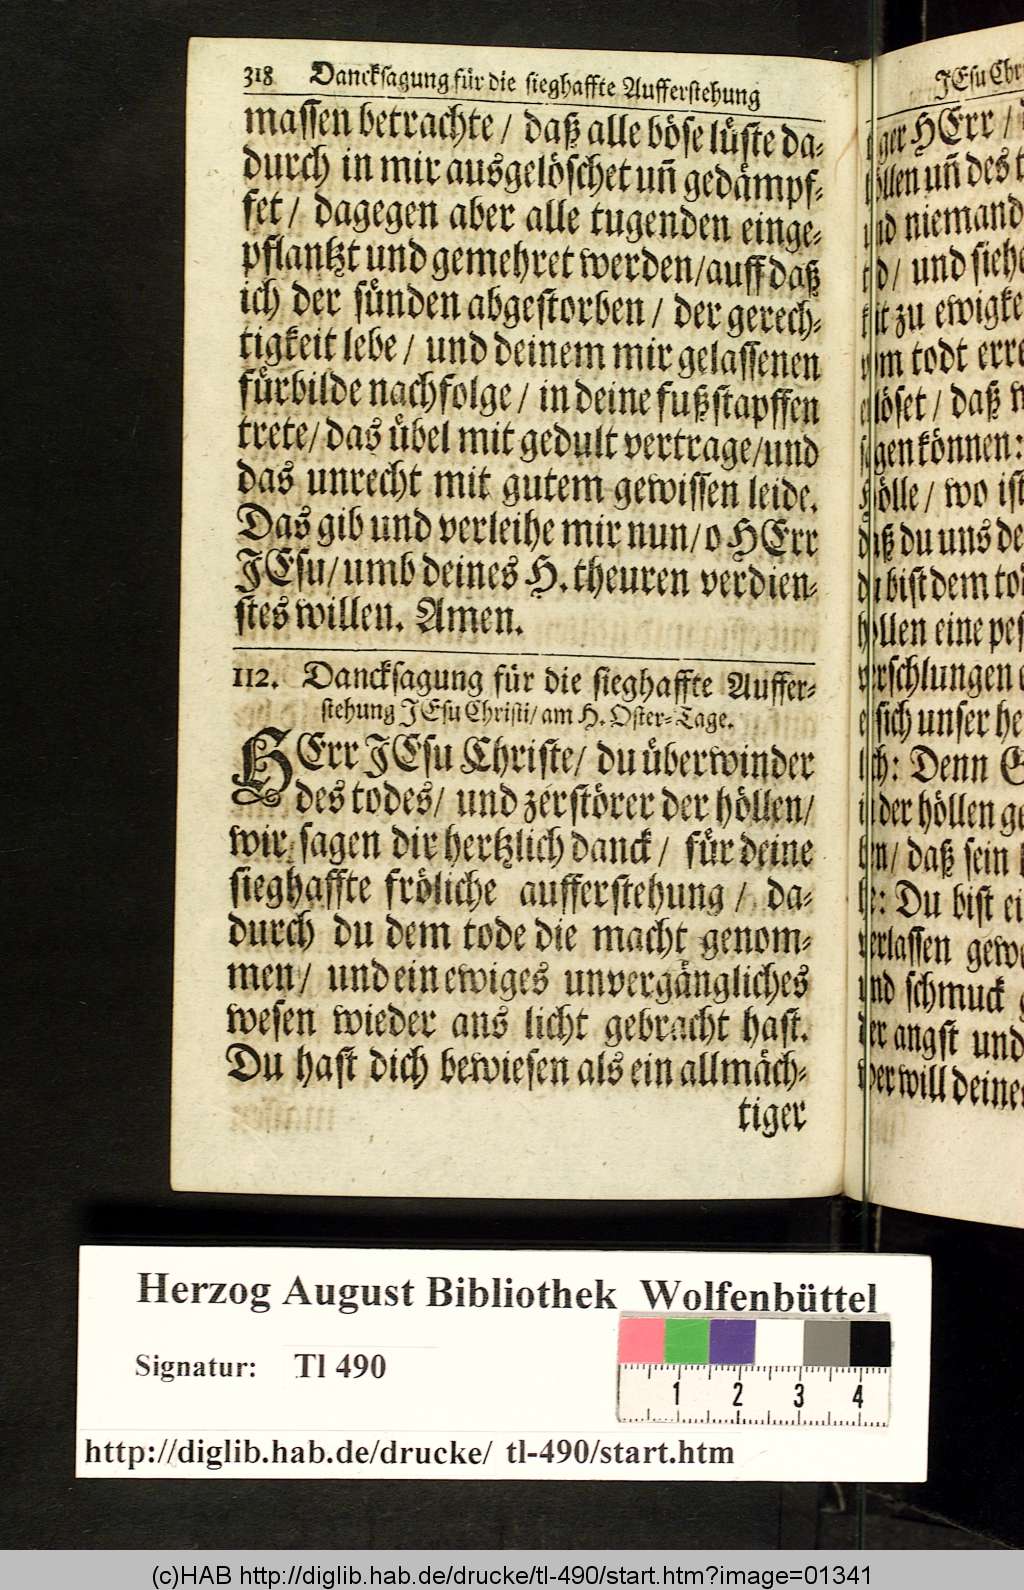 318 Dancksagung für die sieghaffte Aufferstehung
massen betrachte / daß alle böse lüste da-
durch in mir ausgelöschet uñ gedämpf-
fet / dagegen aber alle tugenden einge-
pflantzt und gemehret werden/auff daß
ich der sünden abgestorben / der gerech-
tigkeit lebe / und deinem mir gelassenen
fürbilde nachfolge / in deine fußstapffen
trete/ das übel mit gedult vertrage/und
das unrecht mit gutem gewissen leide.
Das gib und verleihe mir nun/o HErr
JEsu/umb deines H. theuren verdien-
stes willen. Amen.
112. Dancksagung für die sieghaffte Auffer-
stehung JEsu Christi/ am H. Oster-Tage.
HErr JEsu Christe/ du überwinder
des todes/ und zerstörer der höllen/
wir sagen dir hertzlich danck / für deine
sieghaffte fröliche aufferstehung / da-
durch du dem tode die macht genom-
men / und ein ewiges unvergängliches
wesen wieder ans licht gebracht hast.
Du hast dich bewiesen als ein allmäch-
tiger
JEsu Chri
ger HErr /
llen uñ des t
nd niemand
d/ und siehe
it zu ewigke
m todt erre
löset / daß w
gen können:
ölle / wo ist
ß du uns de
bist dem to
llen eine pes
rschlungen
sich unser he
ch: Denn
der höllen ge
n/ daß sein
: Du bist ei
rlassen gewe
nd schmuck
er angst und
er will deine
Herzog August Bibliothek Wolfenbüttel
Signatur: Tl 490
1 2 3 4
http://diglib.hab.de/drucke/ tl-490/start.htm
(c)HAB http://diglib.hab.de/drucke/tl-490/start.htm?image=01341